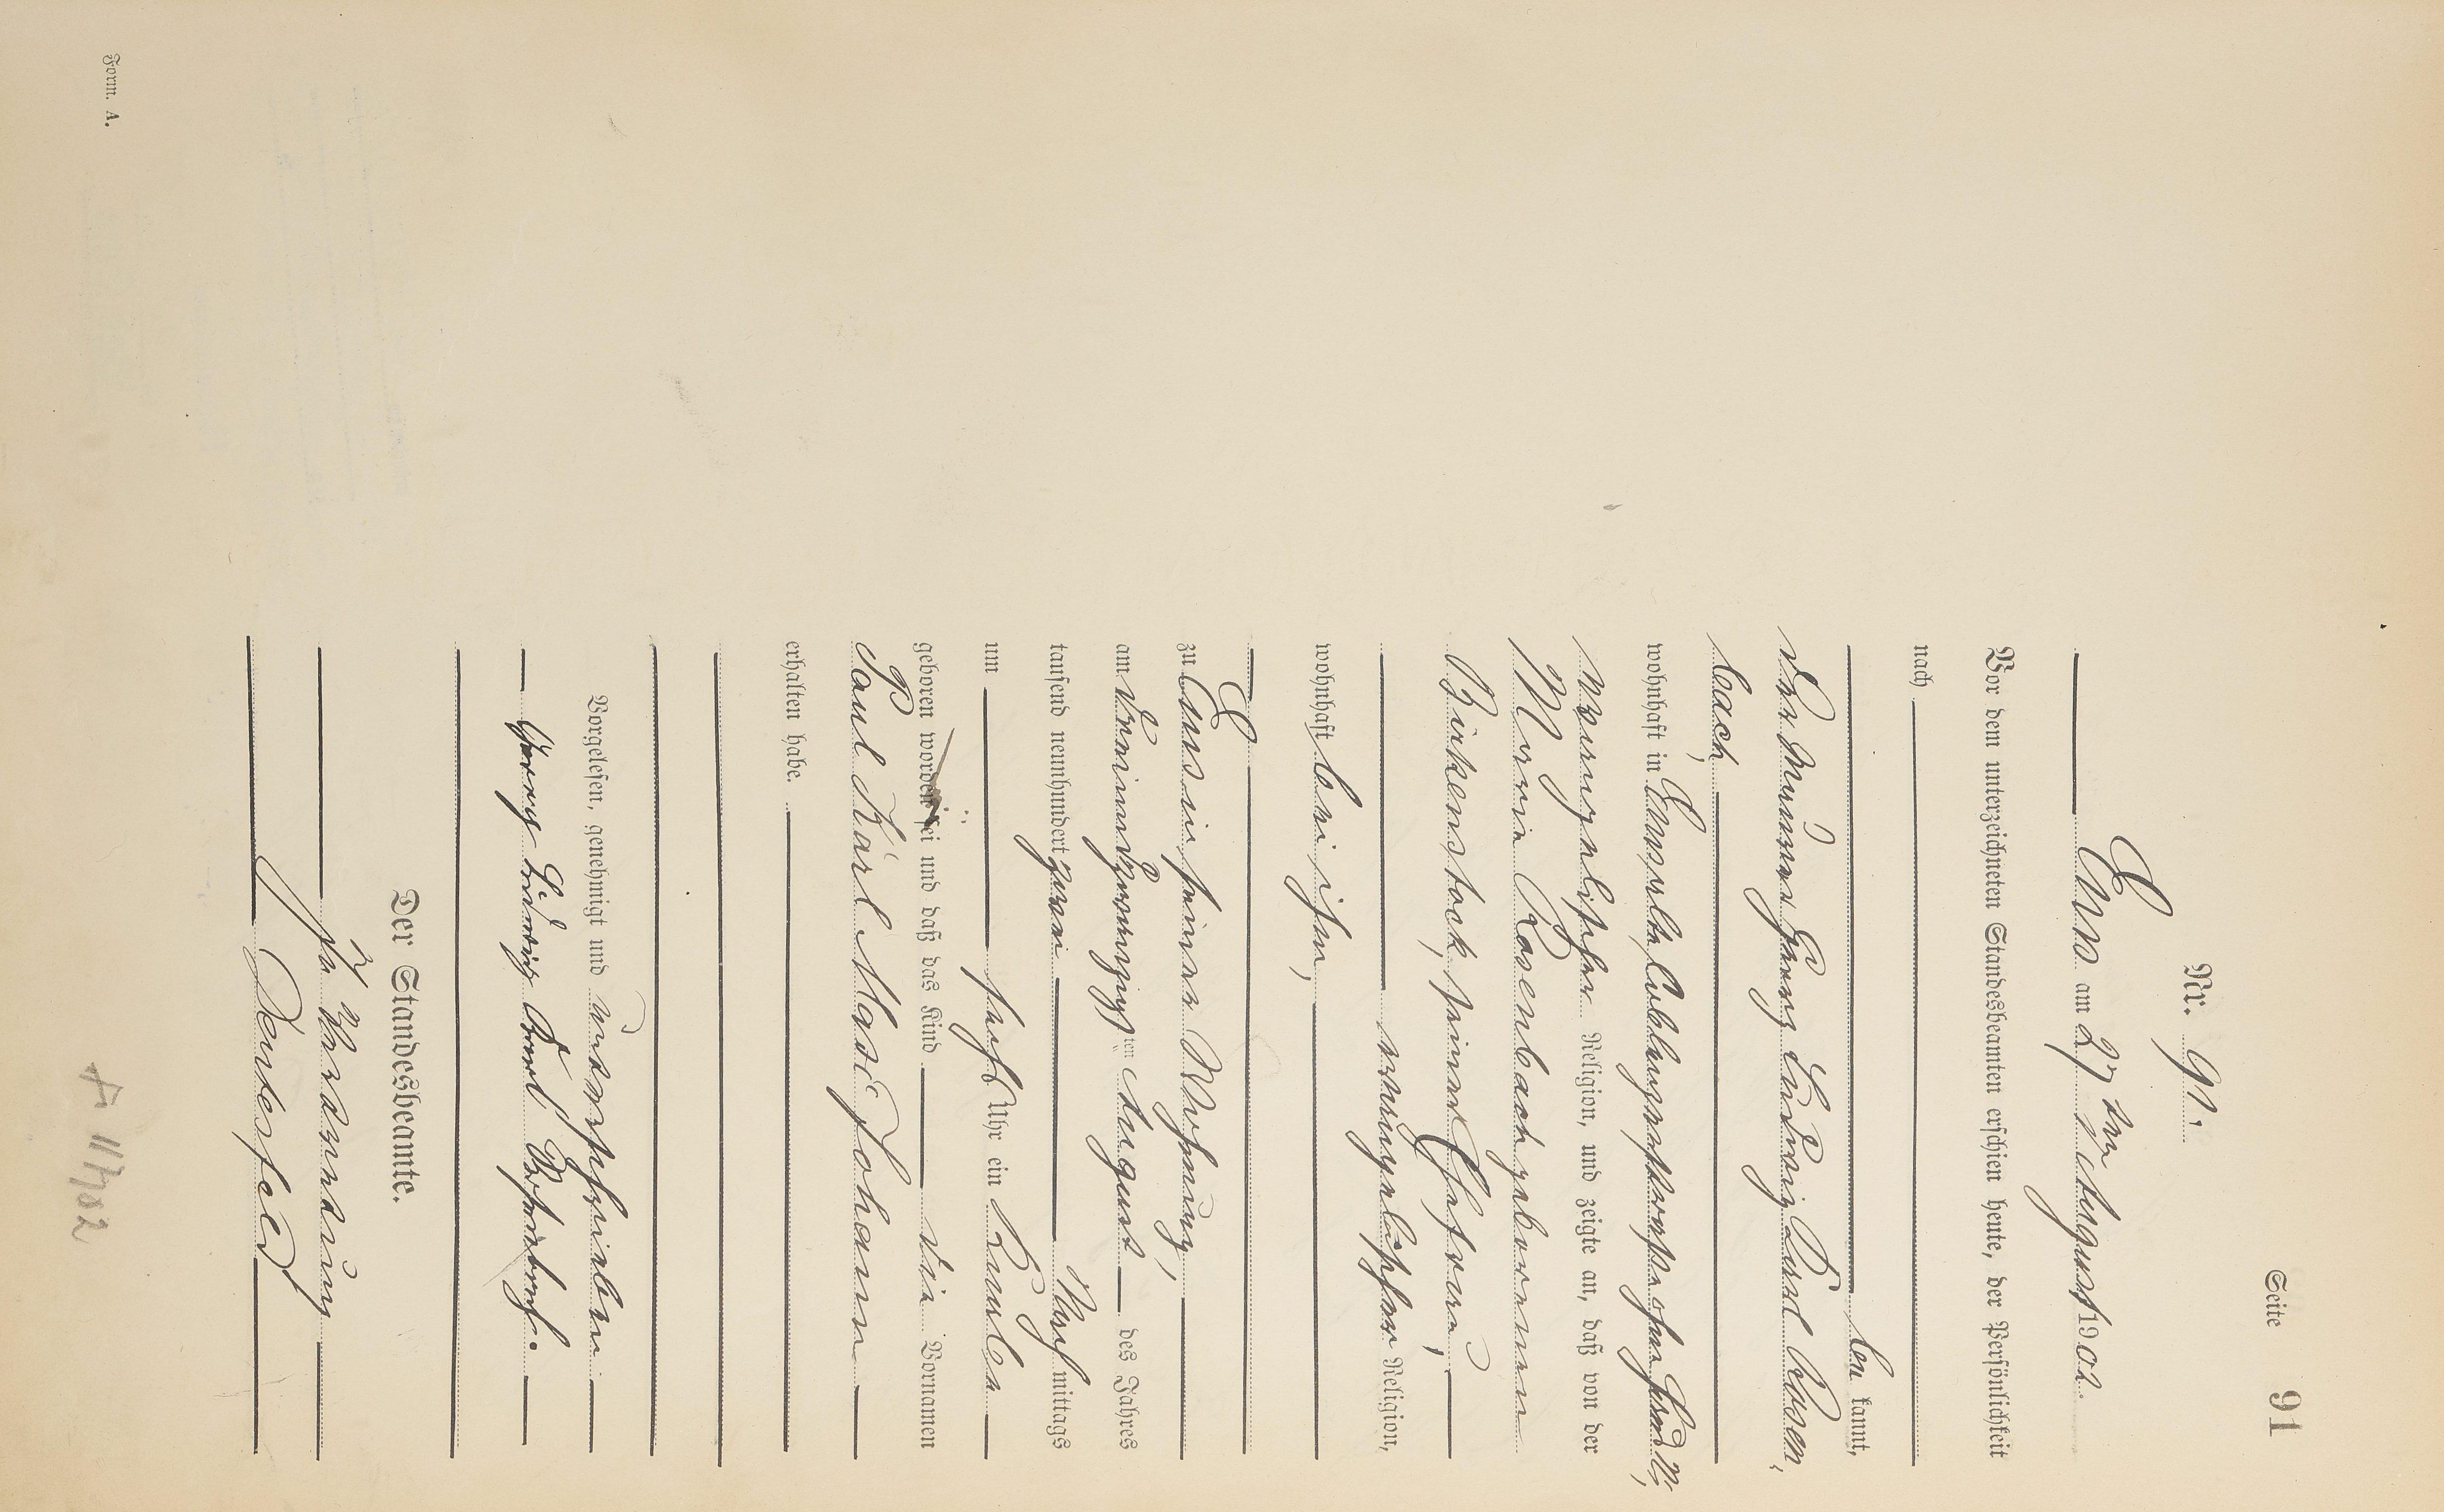 Seite 91
Nr. 91.
Ems am 27ten August 1902.
Vor dem unterzeichneten Standesbeamten erschien heute, der Persönlichkeit
nach
be kannt,
der Maurer Georg Ludwig Karl Rosen-
bach,
wohnhaft in Ems, alte Coblenzerstrasse
evangelischer Religion, und zeigte an, daß von der
Marie Rosenbach geborenen
Birkenstock, seiner Ehefrau,
evangelischer Religion,
wohnhaft bei ihm,
zu Ems in seiner Wohnung,
am dreiundzwanzigsten August des Jahres
tausend neunhundert zwei Nach mittags
um sechs Uhr ein Knabe
geboren worden sei und daß das Kind die Vornamen
Paul Karl Johann
erhalten habe.
Vorgelesen, genehmigt und unterschrieben
Georg Ludwig Karl Rosenbach.
Der Standesbeamte.
In Vertretung
Form. A.